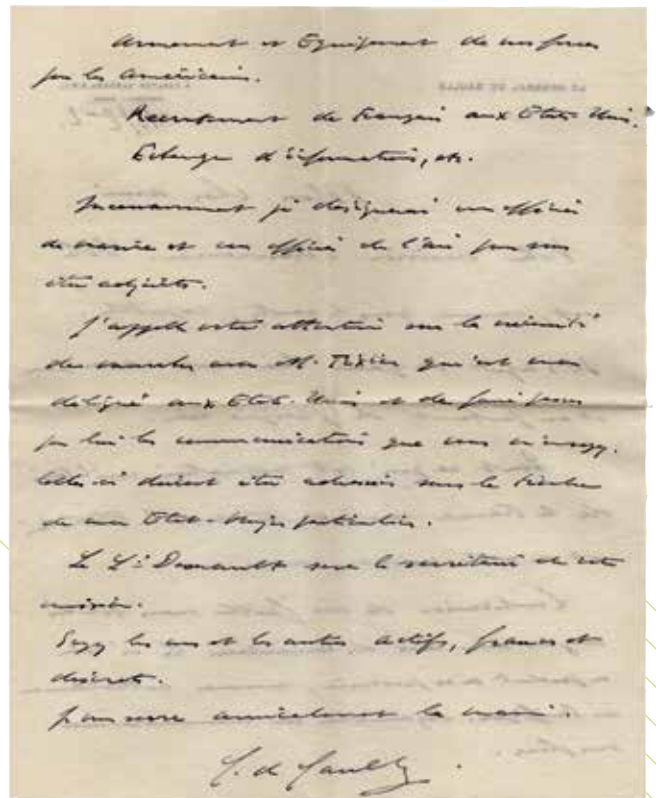 Armement et Equipement de nos forces
par les Américains.
Recrutement de Français aux Etats-Unis.
Echange d'informations, etc.
Incessamment je désignerai un officier
de marine et un officier de l'air pour vous
être adjoints.
J'appelle votre attention sur la nécessité
de marcher avec M. Tixier qui est mon
délégué aux Etats-Unis et de faire passer
par lui les communications que vous m'enverrez.
Celles-ci doivent être adressées sous le timbre
de mon Etat-Major particulier.
Le Lt sera le secrétaire de cette
mission.
Soyez les uns et les autres actifs, francs et
discrets.
Je vous serre amicalement la main.
C. de Gaulle.
LE GENERAL DE GAULLE